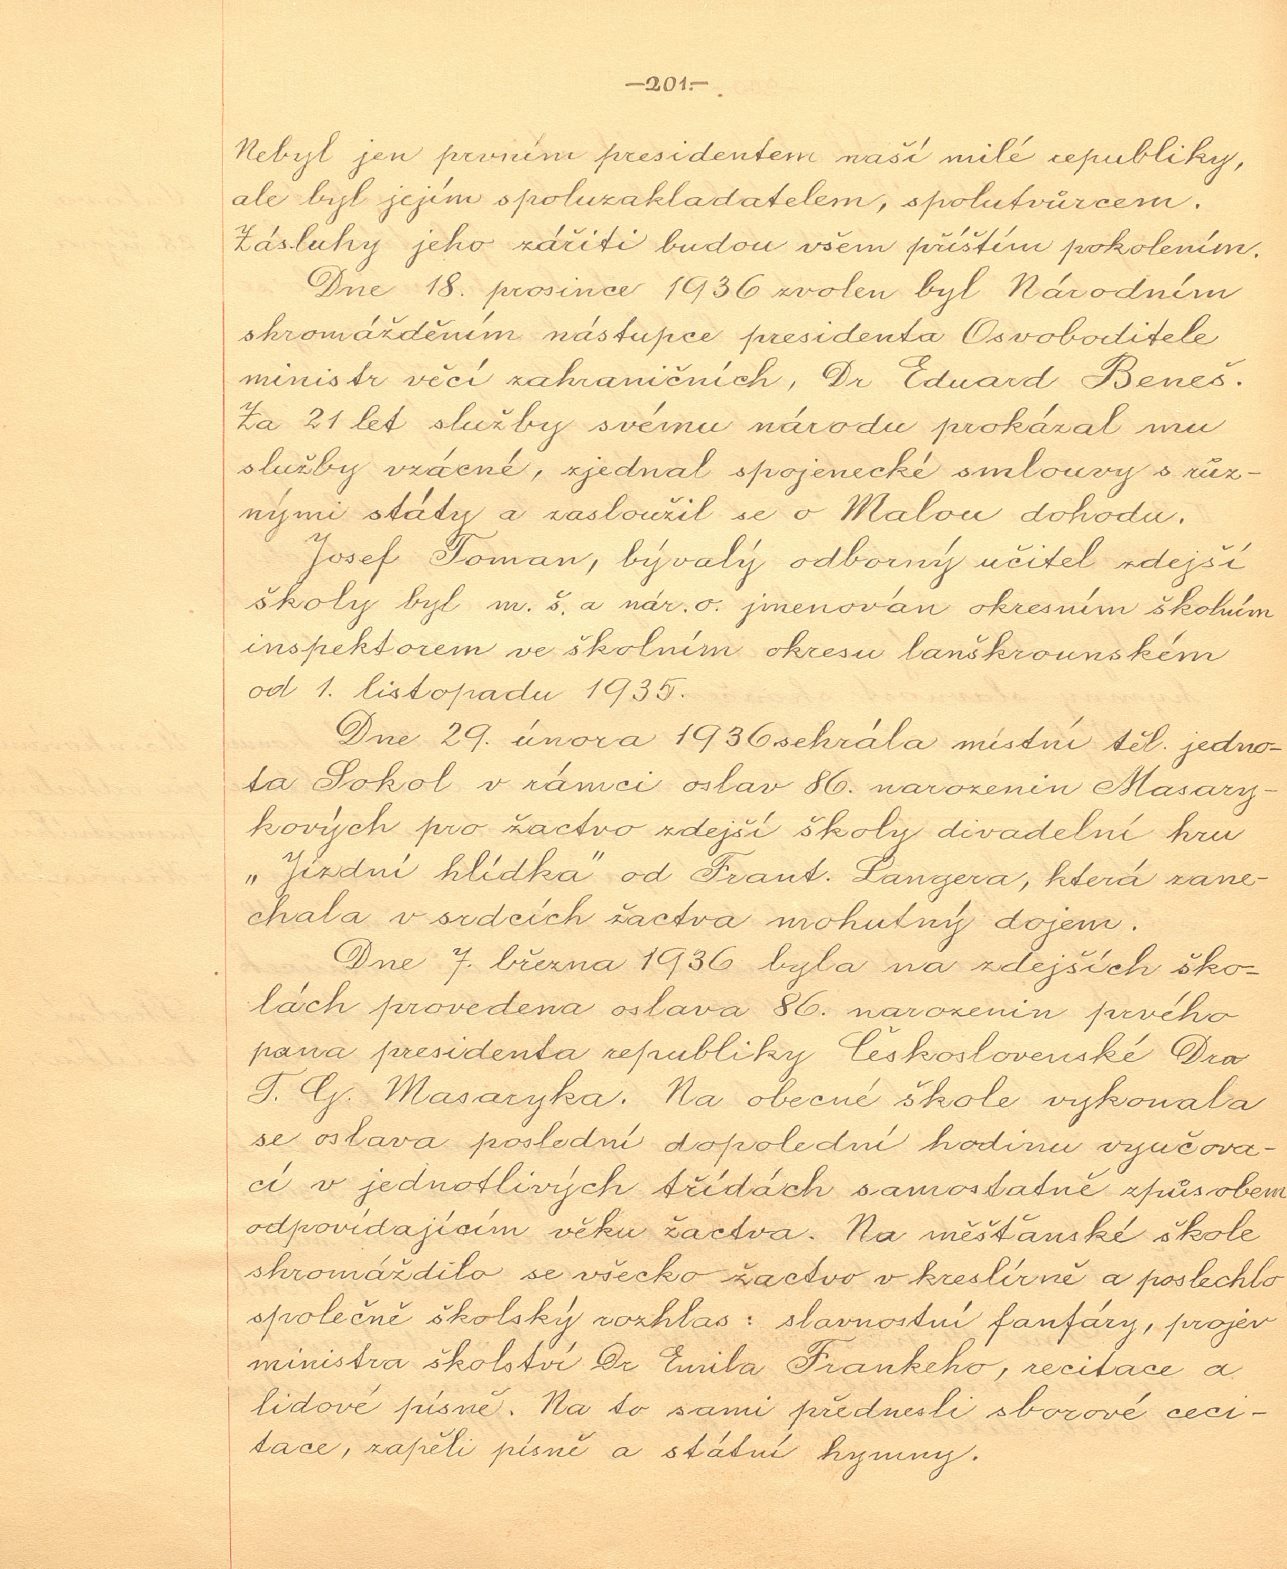 —201.—
Nebyl jen prvním presidentem naší milé republiky,
ale byl jejím spoluzakladatelem, spolutvůrcem.
Zásluhy jeho zářiti budou všem příštím pokolením.
Dne 18. prosince 1936 zvolen byl Národním
shromážděním nástupce presidenta Osvoboditele
ministr věcí zahraničních, Dr Eduard Beneš.
Za 21 let služby svému národu prokázal mu
služby vzácné, zjednal spojenecké smlouvy s růz-
nými státy a zasloužil se o Malou dohodu.
Josef Toman, bývalý odborný učitel zdejší
školy byl m. š. a nár. o. jmenován okresním školním
inspektorem ve školním okresu lanškrounském
od 1. listopadu 1935.
Dne 29. února 1936 sehrála místní těl. jedno-
ta Sokol v rámci oslav 86. narozenin Masary-
kových pro žactvo zdejší školy divadelní hru
„Jízdní hlídka" od Frant. Langera, která zane-
chala v srdcích žactva mohutný dojem.
Dne 7. března 1936 byla na zdejších ško-
lách provedena oslava 86. narozenin prvého
pana presidenta republiky Československé Dra
T. G. Masaryka. Na obecné škole vykonala
se oslava poslední dopolední hodinu vyučova-
cí v jednotlivých třídách samostatně způsobem
odpovídajícím věku žactva. Na měšťanské škole
shromáždilo se všecko žactvo v kreslírně a poslechlo
společně školský rozhlas: slavnostní fanfáry, projev
ministra školství Dr Emila Frankeho, recitace a
lidové písně. Na to sami přednesli sborové ceci-
tace, zapěli písně a státní hymny.